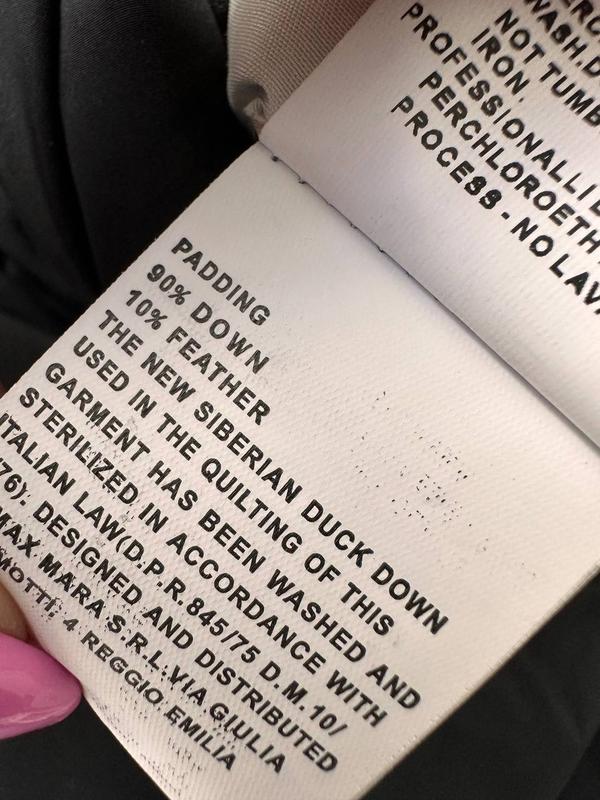 WASH.D
NOT TUMB
IRON.
PROFESSIONALLI
PERCHLOROETH
PROCESS - NO LAV
PADDING
90% DOWN
10% FEATHER
THE NEW SIBERIAN DUCK DOWN
USED IN THE QUILTING OF THIS
GARMENT HAS BEEN WASHED AND
STERILIZED IN ACCORDANCE WITH
ITALIAN LAW(D.P.R.845/75 D.M.10/
76). DESIGNED AND DISTRIBUTED
MAX MARA S.R.L.VIA GIULIA
MOTTI, 4 REGGIO EMILIA